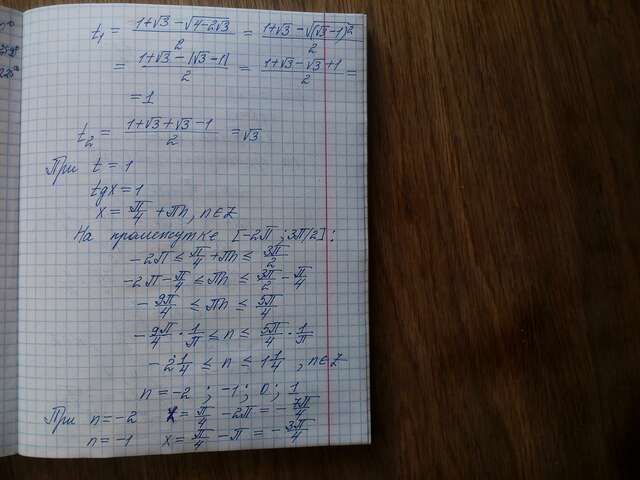 t₁ = (1+√3 − √(4−2√3))/2 = (1+√3 − √((√3−1)²))/2
= (1+√3 − |√3−1|)/2 = (1+√3−√3+1)/2 =
= 1
t₂ = (1+√3+√3−1)/2 = √3
При t = 1
tgx = 1
x = π/4 + πn, n∈Z
На промежутке [−2π; 3π/2]:
−2π ≤ π/4 + πn ≤ 3π/2
−2π − π/4 ≤ πn ≤ 3π/2 − π/4
− 9π/4 ≤ πn ≤ 5π/4
− 9π/4 · 1/π ≤ n ≤ 5π/4 · 1/π
− 2 1/4 ≤ n ≤ 1 1/4, n∈Z
n = −2; −1; 0; 1
При n = −2 x = π/4 − 2π = − 7π/4
n = −1 x = π/4 − π = − 3π/4